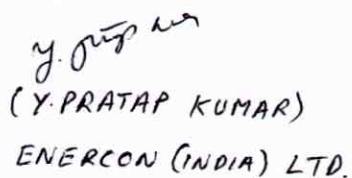 (Y. PRATAP KUMAR)
ENERCON (INDIA) LTD.